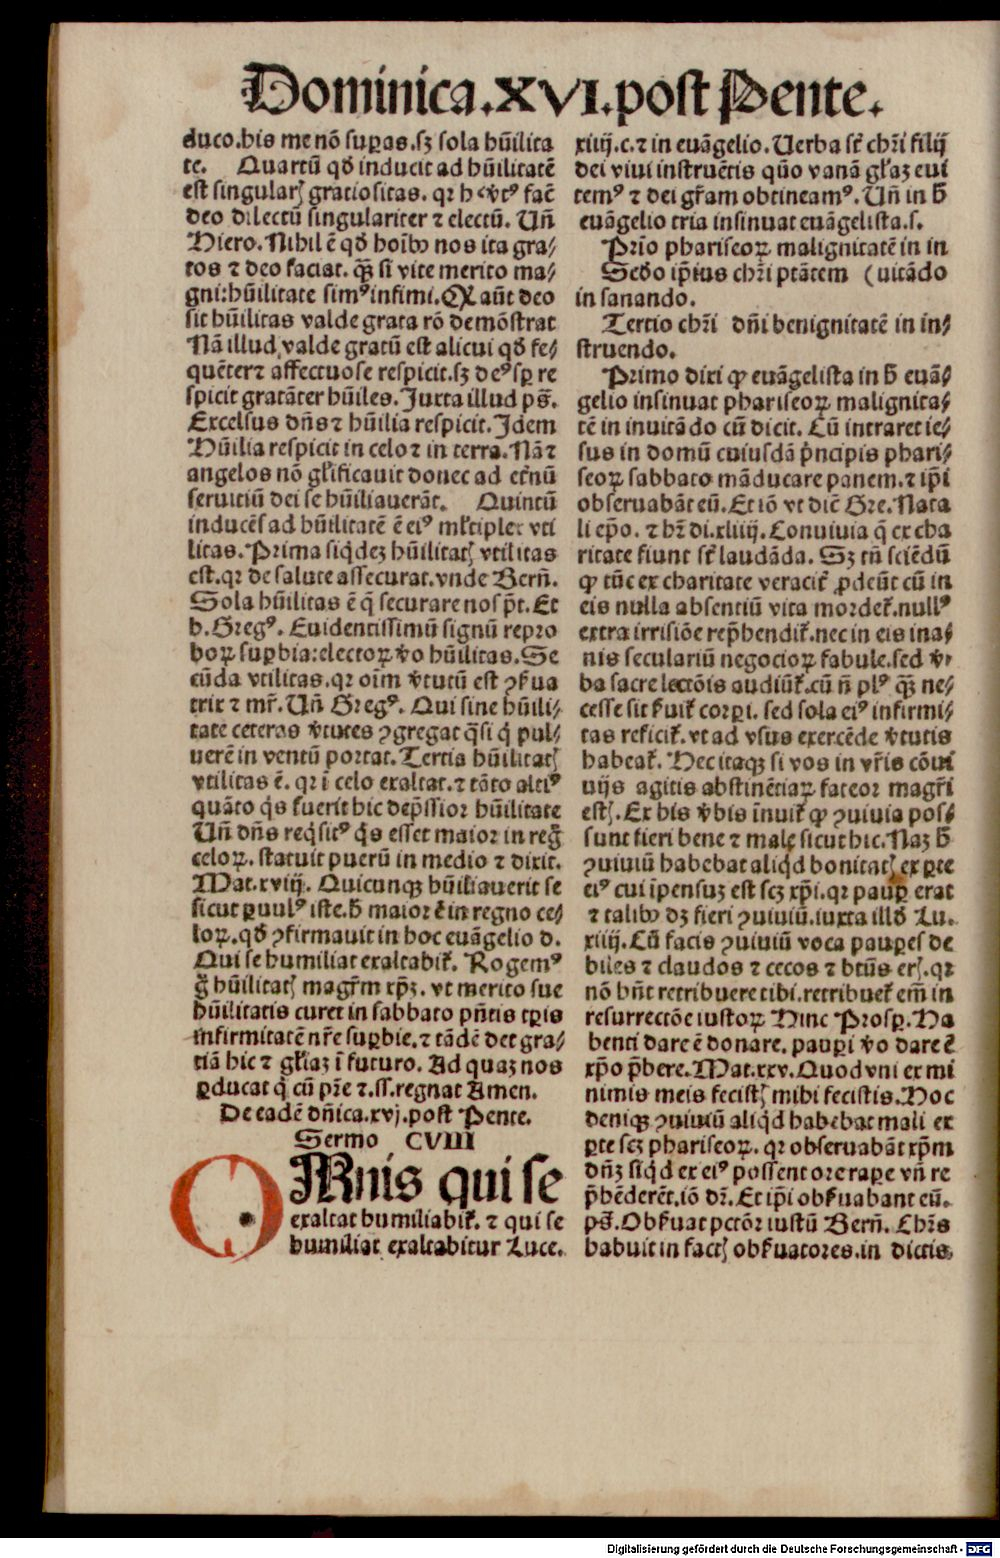 Dominica.XVI.post Pente.
duco.his me nō suꝑas.sꝫ sola hūilita
te. Quartū qđ inducit ad hūilitatē
est singularꝭ gratiositas. qꝛ h facē
deo dilectū singulariter ⁊ electū. Uñ
Hiero. Nihil ē qđ hoībꝰ nos ita gra⸗
tos ⁊ deo faciat. qꝙ si vite merito ma⸗
gni:hūilitate simꝰ infimi. Qꝛ aūt deo
sit hūilitas valde grata rō demōstrat
Nā illud valde gratū est alicui qđ fe⸗
quēter⁊ affectuose respicit.sꝫ deꝰ sꝑ re
spicit gratāter hūiles. Juxta illud pš.
Excelsus dñs ⁊ hūilia respicit. Jdem
Hūilia respicit in celo ⁊ in terra. Nā ⁊
angelos nō gl̄ificauit donec ad et̄nū
seruitiū dei se hūiliauerāt. Quintū
inducēs ad hūilitatē ē eiꝰ ml̄tiplex vti
litas. Prima siq̇dez hūilitatꝭ vtilitas
est.qꝛ de salute assecurat.vnde Berñ.
Sola hūilitas ē q̄ securare nos p̄t. Et
b. Gregꝰ. Euidentissimū signū repro
boꝝ suꝑbia:electoꝝ v̄o hūilitas. Se
cūda vtilitas.qꝛ oīm v̄tutū est ꝯẜua
trix ⁊ mr̄. Uñ Gregꝰ. Qui sine hūili⸗
tate ceteras v̄tutes ꝯgregat q̄si q̇ pul⸗
uerē in ventū portat. Tertia hūilitatꝭ
vtilitas ē. qꝛ ī celo exaltat. ⁊ tāto altiꝰ
quāto q̇s fuerit hic dep̄ssior hūilitate
Uñ dñs req̇sitꝰ q̇s esset maior in reg̃
celoꝝ. statuit puerū in medio ⁊ dixit.
Mat.xviij. Quicunqꝫ hūiliauerit se
sicut ꝑuulꝰ iste.h̄ maior ē in regno ce⸗
loꝝ.qđ ꝯfirmauit in hoc euāgelio d.
Qui se humiliat exaltabit̄. Rogemꝰ
g̃ hūilitatꝭ magr̄m xp̄ꝫ. vt merito sue
hūilitatis curet in sabbato pñtis tꝑis
infirmitatē nr̄e suꝑbie.⁊ tādē det gra⸗
tiā hic ⁊ gl̄iaꝫ ī futuro. Ad quaꝫ nos
ꝑducat q̇ cū pr̄e ⁊.ss.regnat Amen.
De eadē dñica.xvj.post Pente.
Sermo CVIII
OMnis qui se
exaltat humiliabit̄. ⁊ qui se
humiliat exaltabitur Luce.
xiiij.c.⁊ in euāgelio. Uerba sī chr̄i filij
dei viui instruētis quō vanā gl̄iaꝫ eui
temꝰ ⁊ dei gr̄am obtineamꝰ. Uñ in h̄
euāgelio tria insinuat euāgelista.s.
Prīo phariseoꝝ malignitatē in in
Scđo ip̄ius chr̄i ptātem (uitādo
in sanando.
Tertio chr̄i dñi benignitatē in in⸗
struendo.
Primo dixi ꝙ euāgelista in h̄ euā⸗
gelio insinuat phariseoꝝ malignita⸗
tē in inuitādo cū dicit. Cū intraret ie⸗
sus in domū cuiusdā p̄ncipis phari⸗
seoꝝ sabbato māducare panem.⁊ ip̄i
obseruabāt eū. Et iō vt dic̄ Gre. Nata
li ep̄o. ⁊ hr̄ di.xliiij. Conuiuia q̄ ex cha
ritate fiunt sī laudāda. Sꝫ tñ sciēdū
ꝙ tūc ex charitate veracit̄ ꝓdeūt cū in
eis nulla absentiū vita mordet̄.nullꝰ
extra irrisiōe rep̄hendit̄.nec in eis ina⸗
nis seculariū negocioꝝ fabule.sed v̄⸗
ba sacre lectōis audiūt̄.cū ñ plꝰ qꝙ ne⸗
cesse sit ẜuit̄ corꝑi. sed sola eiꝰ infirmi⸗
tas reficit̄. vt ad vsus exercēde v̄tutis
habeat̄. Hec itaqꝫ si vos in vr̄is cōui
uijs agitis abstinētiaꝝ fateor magr̄i
estꝭ. Ex his v̄bis īnuit̄ ꝙ ꝯuiuia pos⸗
sunt fieri bene ⁊ male sicut hic. Naꝫ h̄
ꝯuiuiū habebat aliq̇d bonitatꝭ ex ꝑte
eiꝰ cui īpensuꝫ est scꝫ xp̄i.qꝛ pauꝑ erat
⁊ talibꝰ dꝫ fieri ꝯuiuiū.iuxta illđ Lu.
xiiij. Cū facis ꝯuiuiū voca pauꝑes de
biles ⁊ claudos ⁊ cecos ⁊ btūs erꝭ.qꝛ
nō hñt retribuere tibi.retribuet̄ em̄ in
resurrectōe iustoꝝ Hinc Prosꝑ. Ha
benti dare ē donare. pauꝑi v̄o dare ē
xp̄o p̄bere. Mat.xxv. Quod vni ex mi
nimis meis fecistꝭ mihi fecistis. Hoc
deniqꝫ ꝯuiuiū aliq̇d habebat mali ex
ꝑte scꝫ phariseoꝝ. qꝛ obseruabāt xp̄m
dñꝫ siq̇d ex eiꝰ possent ore rape vñ re
p̄hēderēt.iō dr̄. Et ip̄i obẜuabant eū.
pš. Obẜuat pctōr iustū Berñ. Chr̄s
habuit in factꝭ obẜuatores.in dictis
Digitalisierung gefördert durch die Deutsche Forschungsgemeinschaft - DFG